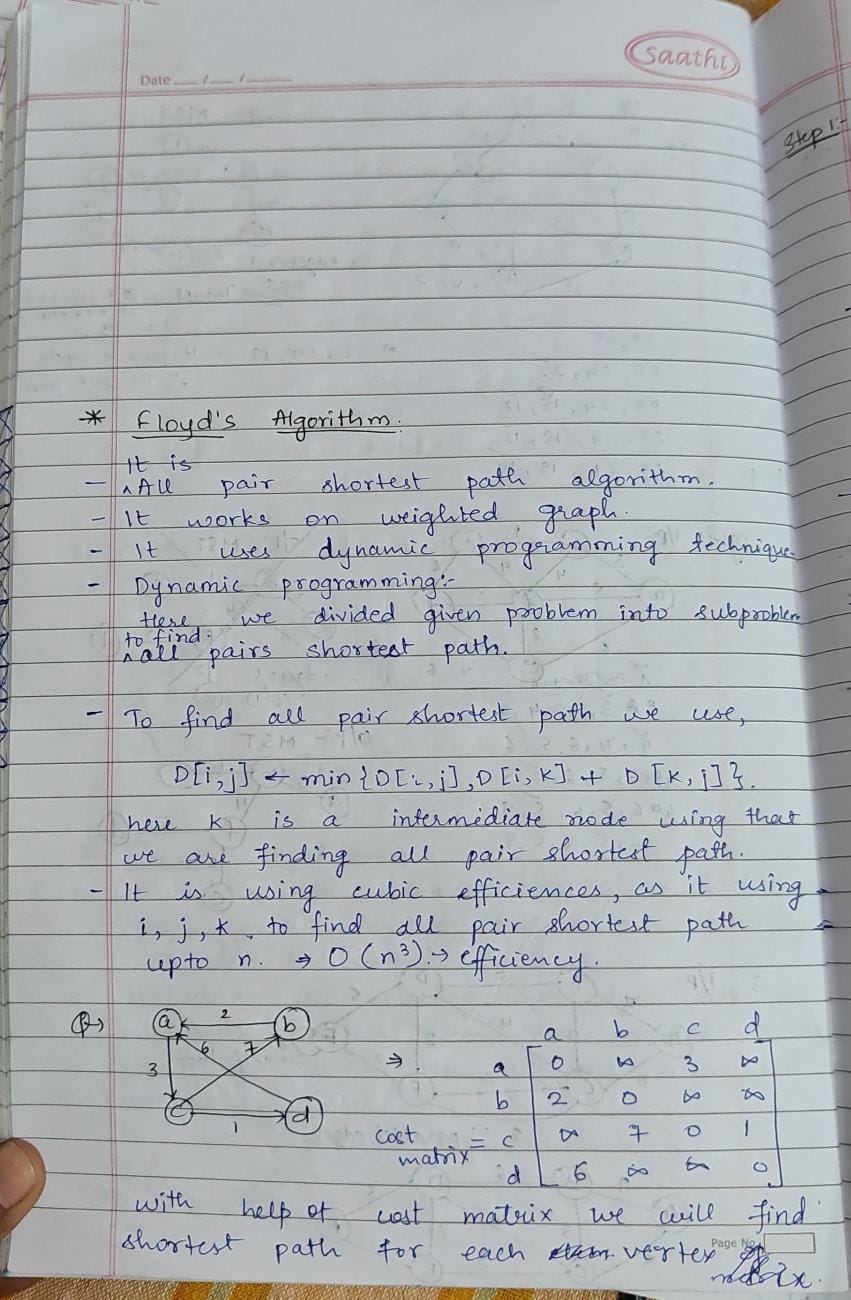 saathi
Date __/__/____
Step 1:-
* Floyd's Algorithm.
It is
- ^All pair shortest path algorithm.
- It works on weighted graph.
- It uses dynamic programming technique.
- Dynamic programming:-
Here we divided given problem into subproblem
to find
^all pairs shortest path.
- To find all pair shortest path we use,
D[i,j] ← min{D[i,j], D[i,k] + D[k,j]}.
here k is a intermediate node using that
we are finding all pair shortest path.
- It is using cubic efficiences, as it using
i, j, k, to find all pair shortest path
upto n. ⇒ O(n³) → efficiency.
Q→
a 2 b
3 6 7
c 1 d
⇒
a b c d
a 0 ∞ 3 ∞
b 2 0 ∞ ∞
cost matrix = c ∞ 7 0 1
d 6 ∞ ∞ 0
with help of cost matrix we will find
shortest path for each vertex
Page No.
matrix.